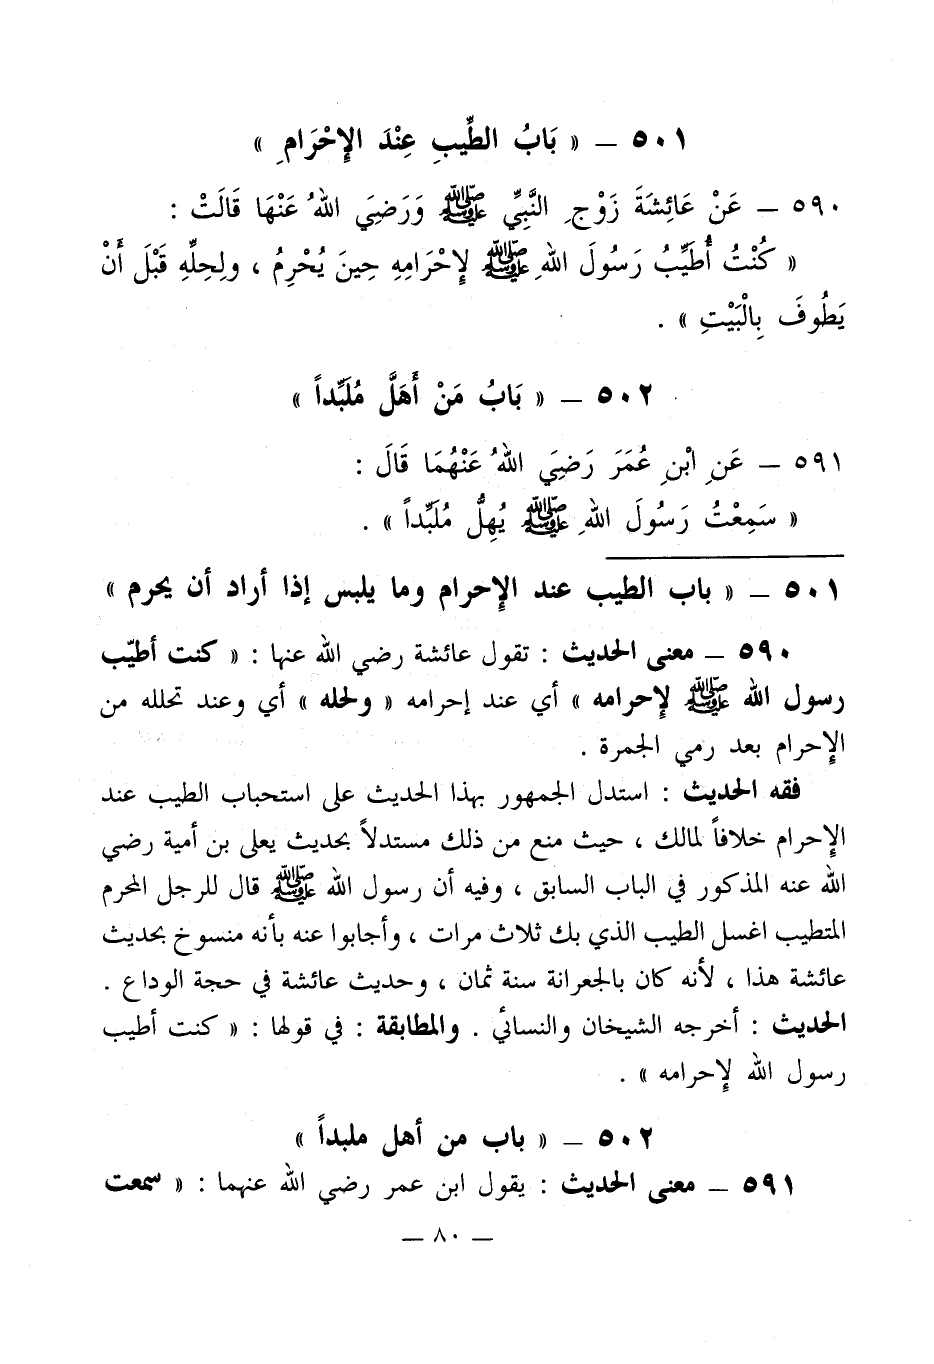 ٥٠١ – « بَابُ الطِّيبِ عِنْدَ الإِحْرَامِ »
٥٩٠ – عَنْ عَائِشَةَ زَوْجِ النَّبِيِّ ﷺ وَرَضِيَ اللهُ عَنْهَا قَالَتْ :
« كُنْتُ أُطَيِّبُ رَسُولَ اللهِ ﷺ لِإحْرَامِهِ حِينَ يُحْرِمُ ، ولِحِلِّهِ قَبْلَ أَنْ
يَطُوفَ بِالْبَيْتِ » .
٥٠٢ – « بَابُ مَنْ أَهَلَّ مُلَبِّداً »
٥٩١ – عَنِ ابْنِ عُمَرَ رَضِيَ اللهُ عَنْهُمَا قَالَ :
« سَمِعْتُ رَسُولَ اللهِ ﷺ يُهِلُّ مُلَبِّداً » .
٥٠١ – « باب الطيب عند الإحرام وما يلبس إذا أراد أن يحرم »
٥٩٠ – معنى الحديث : تقول عائشة رضي الله عنها : « كنت أطيّب
رسول الله ﷺ لإحرامه » أي عند إحرامه « ولحله » أي وعند تحلله من
الإحرام بعد رمي الجمرة .
فقه الحديث : استدل الجمهور بهذا الحديث على استحباب الطيب عند
الإحرام خلافاً لمالك ، حيث منع من ذلك مستدلاً بحديث يعلى بن أمية رضي
الله عنه المذكور في الباب السابق ، وفيه أن رسول الله ﷺ قال للرجل المحرم
المتطيب اغسل الطيب الذي بك ثلاث مرات ، وأجابوا عنه بأنه منسوخ بحديث
عائشة هذا ، لأنه كان بالجعرانة سنة ثمان ، وحديث عائشة في حجة الوداع .
الحديث : أخرجه الشيخان والنسائي . والمطابقة : في قولها : « كنت أطيب
رسول الله لإحرامه » .
٥٠٢ – « باب من أهل ملبداً »
٥٩١ – معنى الحديث : يقول ابن عمر رضي الله عنهما : « سمعت
– ٨٠ –